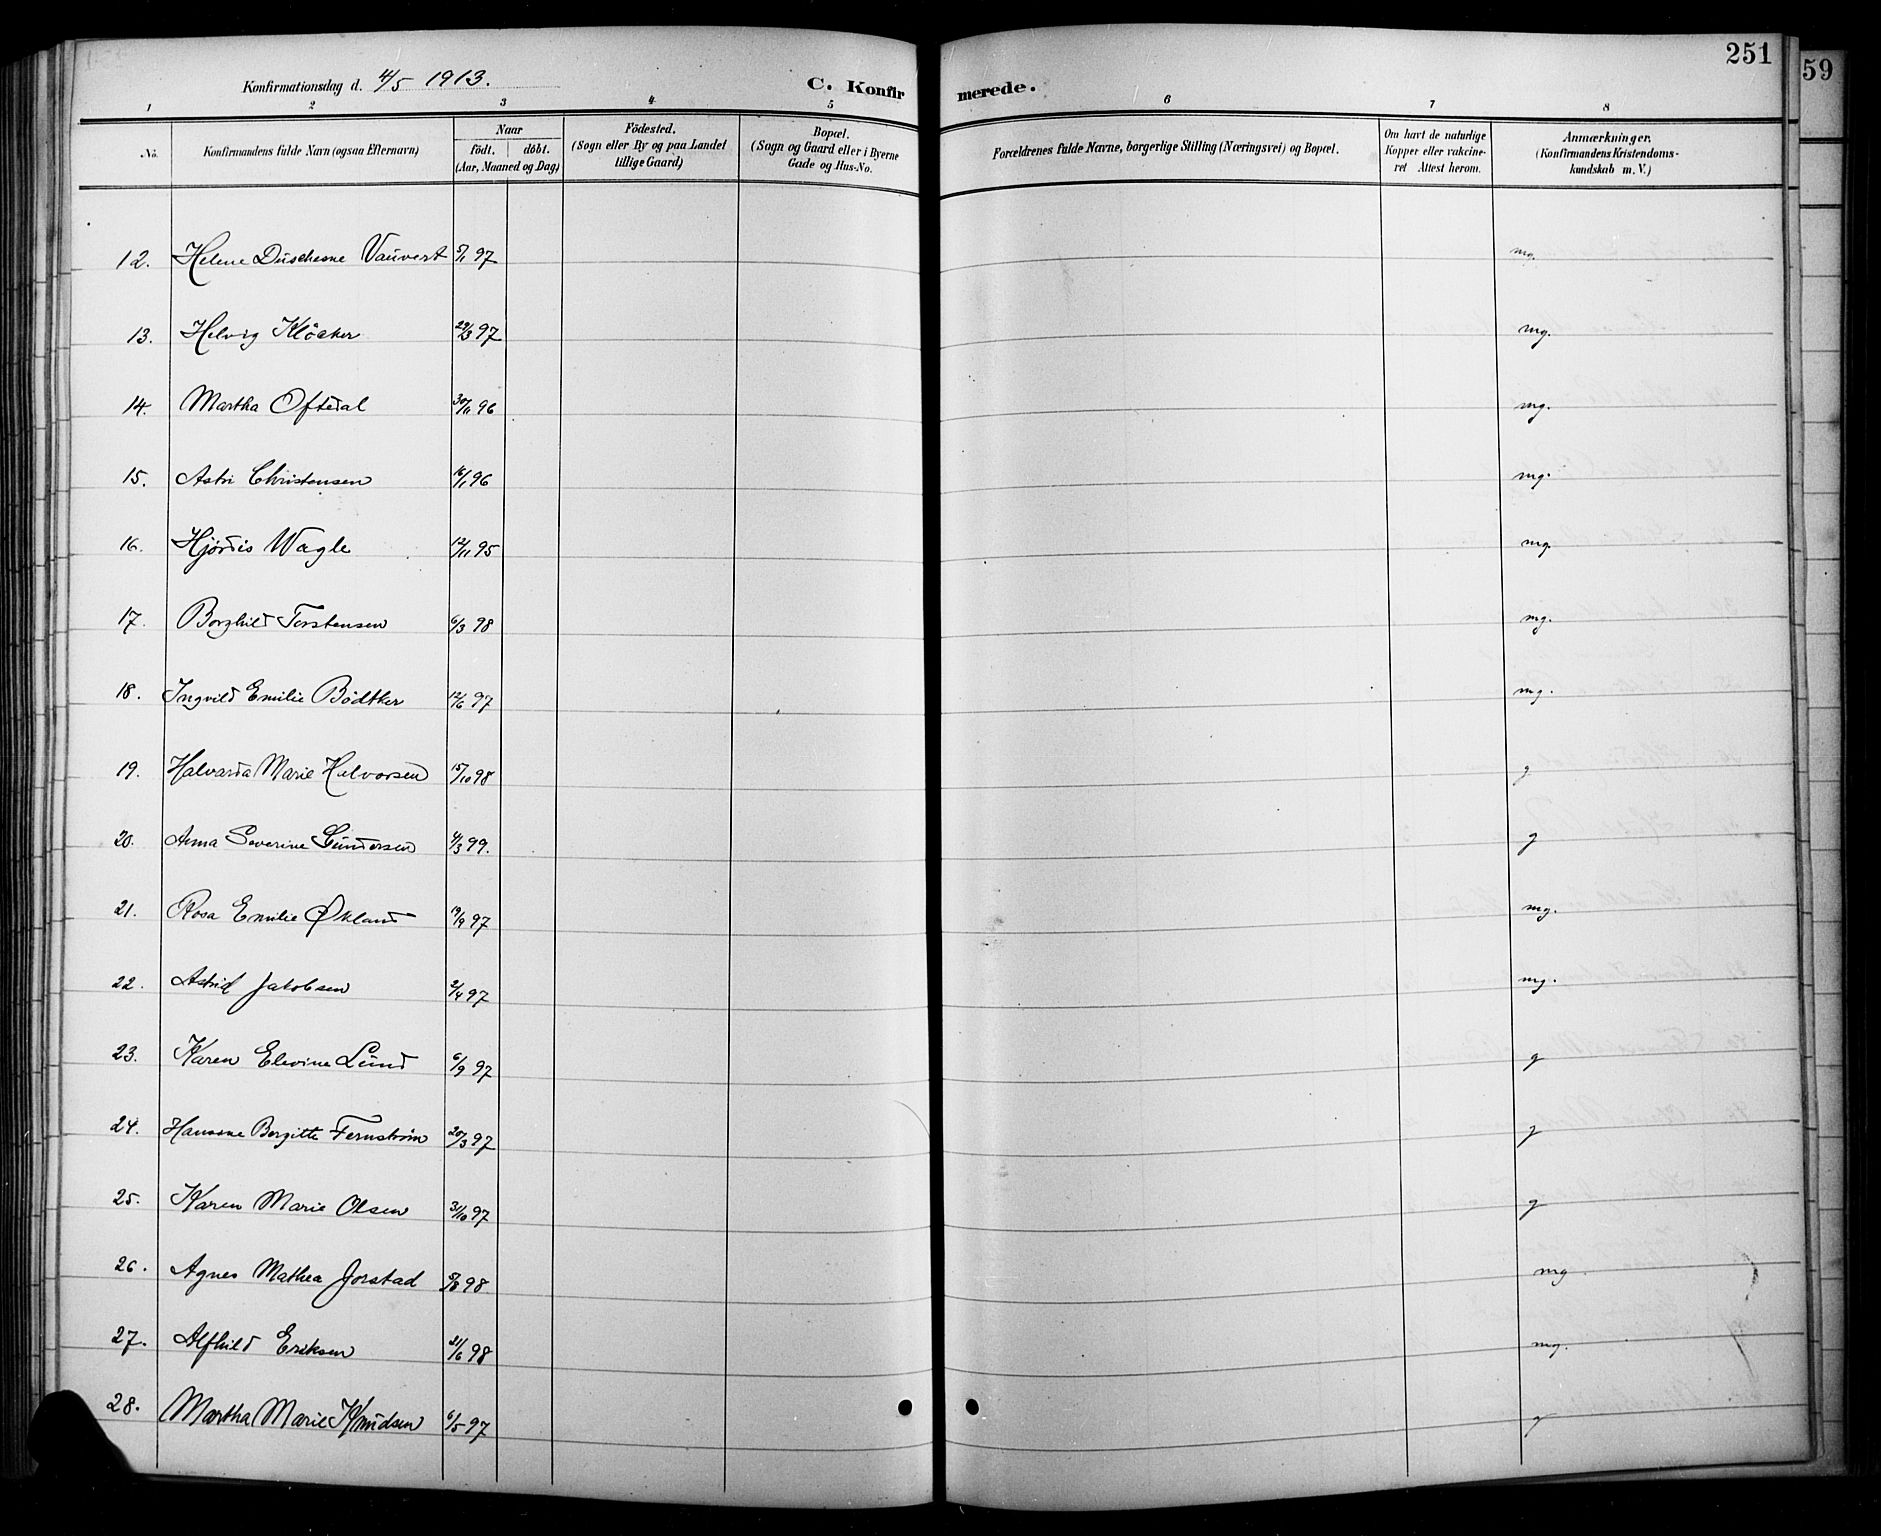 251
59
Konfirmationsdag d. 4/5 1913.
C. Konfirmerede.
1 2 3 4 5 6 7 8
No.
Konfirmandens fulde Navn (ogsaa Efternavn)
Naar
födt. döbt.
(Aar, Maaned og Dag)
Födested.
(Sogn eller By og paa Landet
tillige Gaard)
Bopæl.
(Sogn og Gaard eller i Byerne
Gade og Hus-No.
Forældrenes fulde Navne, borgerlige Stilling (Næringsvei) og Bopæl.
Om havt de naturlige
Kopper eller vakcine-
ret Attest herom.
Anmærkninger.
(Konfirmandens Kristendoms-
kundskab m. V.)
12. Helene Duschesne Vauvert 5/1 97 mg.
13. Helvig Klöcker 29/3 97 mg.
14. Martha Oftedal 30/11 96 mg.
15. Astri Christensen 16/1 96 mg.
16. Hjørdis Wagle 12/11 95 mg.
17. Borghild Torstensen 6/3 98 mg.
18. Ingvild Emilie Bödtker 12/6 97 mg.
19. Halvarda Marie Halvorsen 15/10 98 g
20. Anna Severine Gundersen 4/3 99. g
21. Rosa Emilie Økland 19/9 97 mg.
22. Astrid Jakobsen 2/4 97 mg.
23. Karen Elevine Lund 6/9 97 g
24. Hansine Bergitte Fernstrøm 20/3 97 g
25. Karen Marie Olsen 31/10 97 g
26. Agnes Mathea Jorstad 5/8 98 mg
27. Alfhild Eriksen 21/6 98 mg.
28. Martha Marie Knudsen 6/5 97 g